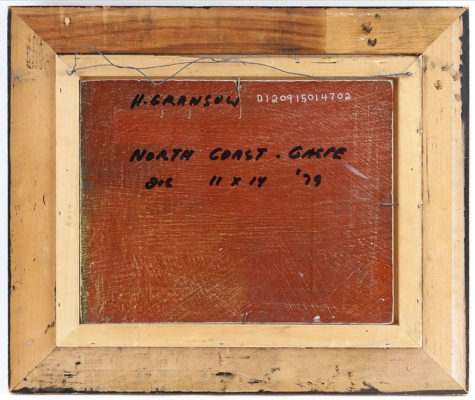 H. GRANSOW D120915014702
NORTH COAST - GASPE
OIL 11 X 14 '79